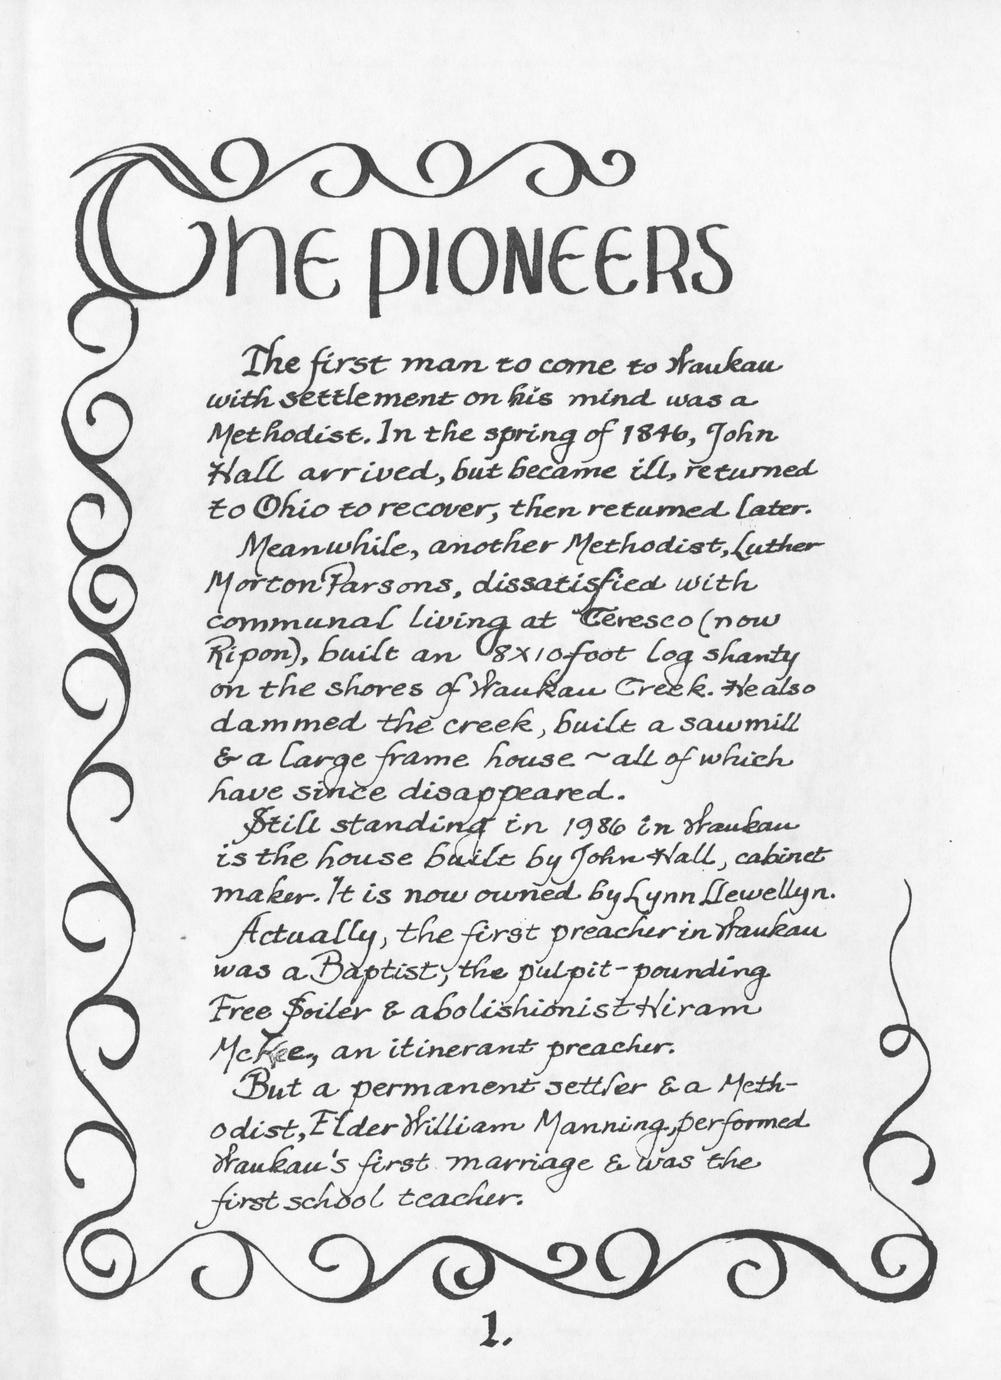 The PIONEERS
The first man to come to Waukau
with settlement on his mind was a
Methodist. In the spring of 1846, John
Hall arrived, but became ill, returned
to Ohio to recover, then returned later.
Meanwhile, another Methodist, Luther
Morton Parsons, dissatisfied with
communal living at Ceresco (now
Ripon), built an 8x10-foot log shanty
on the shores of Waukau Creek. He also
dammed the creek, built a sawmill
& a large frame house ~ all of which
have since disappeared.
Still standing in 1986 in Waukau
is the house built by John Hall, cabinet
maker. It is now owned by Lynn Llewellyn.
Actually, the first preacher in Waukau
was a Baptist, the pulpit-pounding
Free Soiler & abolishionist Hiram
McKee, an itinerant preacher.
But a permanent settler & a Meth-
odist, Elder William Manning, performed
Waukau's first marriage & was the
first school teacher.
1.